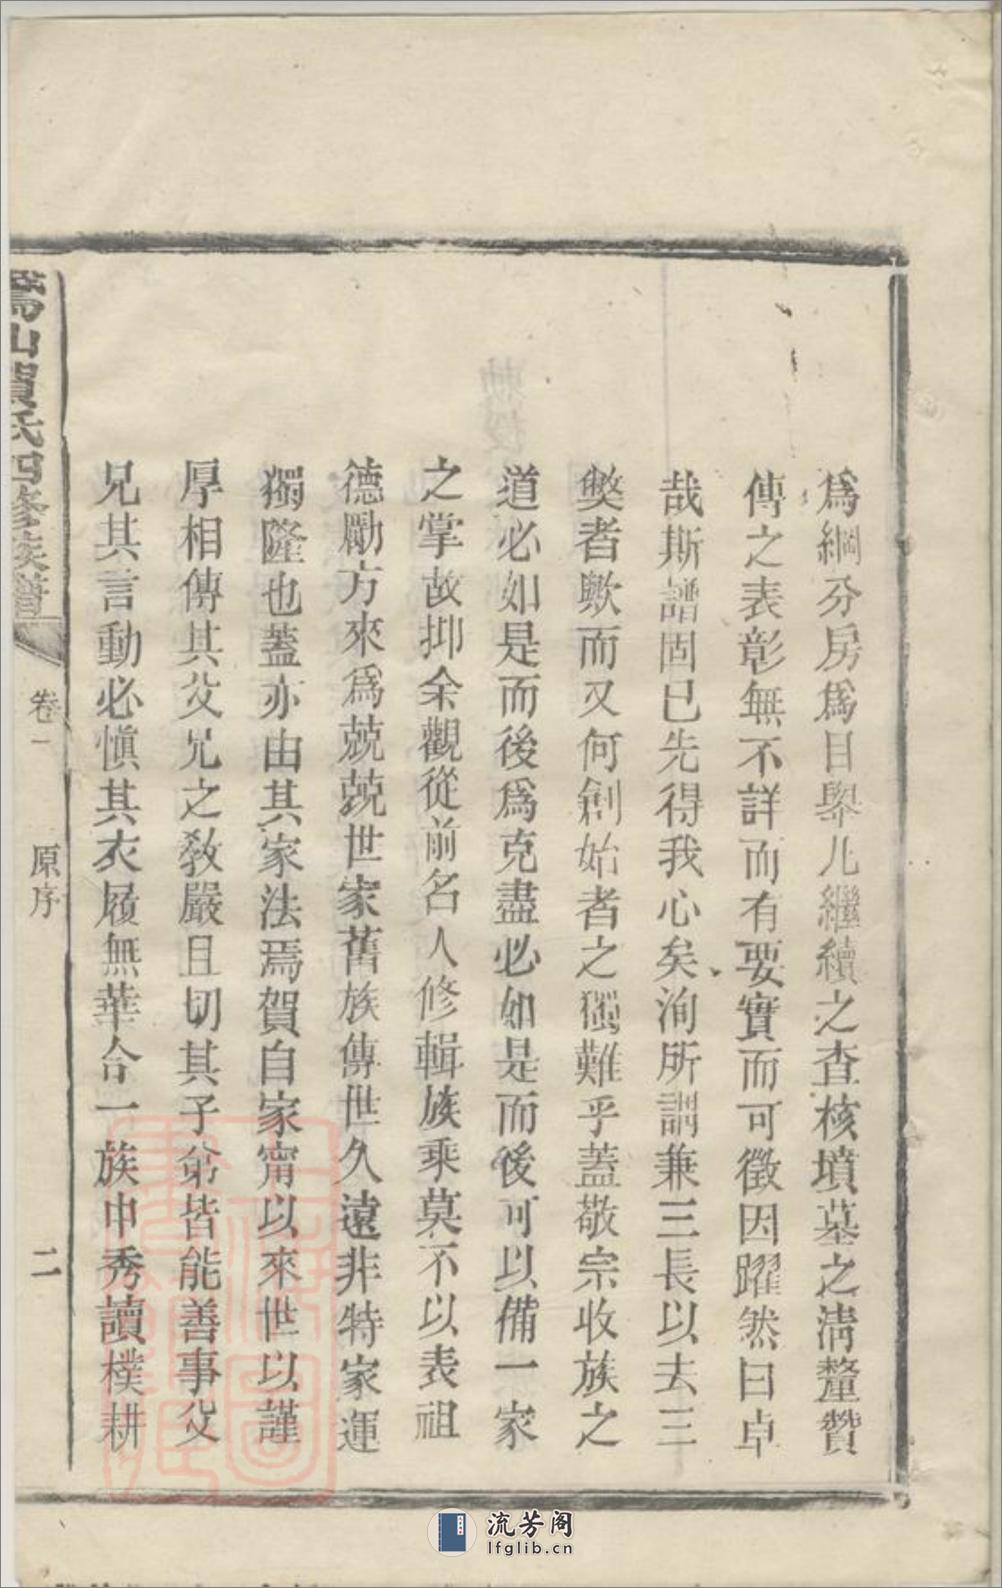 爲綱分房爲目舉凡繼續之査核墳墓之淸釐贊
傳之表彰無不詳而有要實而可徵因躍然曰卓
哉斯譜固已先得我心矣洵所謂兼三長以去三
獘者歟而又何創始者之獨難乎蓋敬宗收族之
道必如是而後爲克盡必如是而後可以備一家
之掌故抑余觀從前名人修輯族乘莫不以表祖
德勵方來爲兢兢世家舊族傳世久遠非特家運
獨隆也蓋亦由其家法焉賀自家甯以來世以謹
厚相傳其父兄之敎嚴且切其子弟皆能善事父
兄其言動必愼其衣履無華合一族中秀讀樸耕
山賀氏四修族譜
卷一
原序
二
流芳阁
lfglib.cn